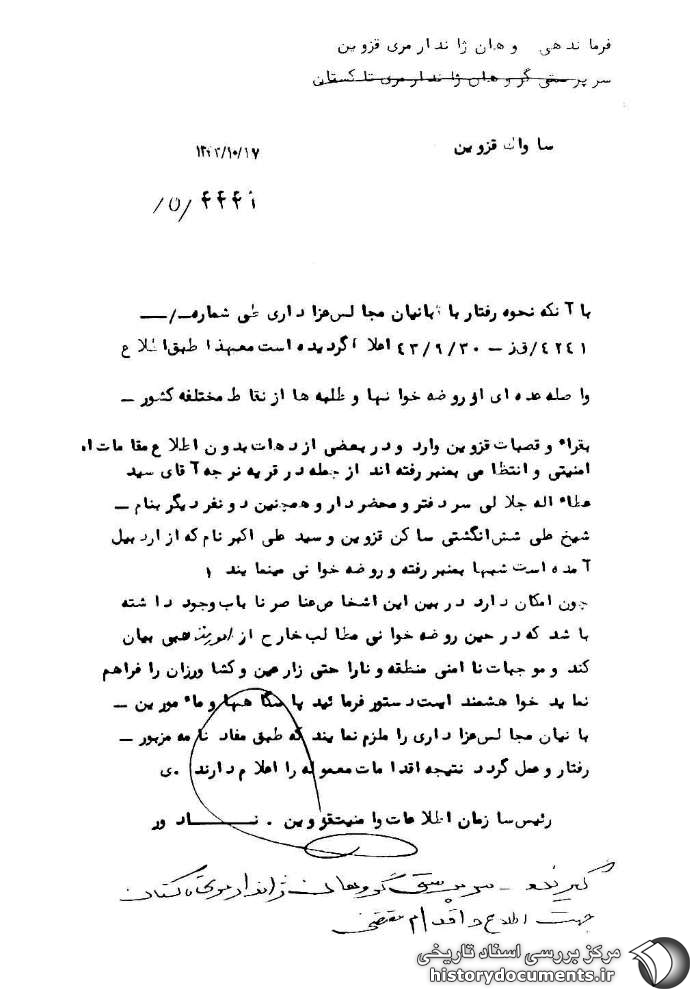 فرماندهی وهان ژاندارمری قزوین
سرپرستی گروهان ژاندارمری تاکستان
ساواک قزوین
۱۳۴۳/۱۰/۱۷
۴۴۴۱/۵/
با آنکه نحوه رفتار با بانیان مجالس عزاداری طی شماره ــ/ــ
۴۲۴۱/قز – ۴۳/۹/۳۰ اعلا گردیده است معهذا طبق اطلاع
واصله عده ای از روضه خوانها و طلبه ها از نقاط مختلفه کشور –
بقراء و قصبات قزوین وارد و در بعضی از دهات بدون اطلاع مقامات
امنیتی و انتظامی بمنبر رفته اند از جمله در قریه نرجه آقای سید
عطاء اله جلالی سردفتر و محضردار و همچنین دو نفر دیگر بنام –
شیخ علی شش انگشتی ساکن قزوین و سید علی اکبر نام که از اردبیل
آمده است شبها بمنبر رفته و روضه خوانی مینمایند
چون امکان دارد در بین این اشخاص عناصر ناباب وجود داشته
باشد که در حین روضه خوانی مطالب خارج از امور مذهبی بیان
کند و موجبات ناامنی منطقه و ناراحتی زارعین و کشاورزان را فراهم
نماید خواهشمند است دستور فرمائید پاسگاهها و مامورین –
بانیان مجالس عزاداری را ملزم نمایند که طبق مفاد نامه مزبور –
رفتار و عمل گردد نتیجه اقدامات معموله را اعلام دارند .ی
رئیس سازمان اطلاعات و امنیت قزوین . نــــادور
گیرنده – سرپرستی گروهان ژاندارمری تاکستان
جهت اطلاع و اقدام مقتضی
مرکز بررسی اسناد تاریخی
historydocuments.ir